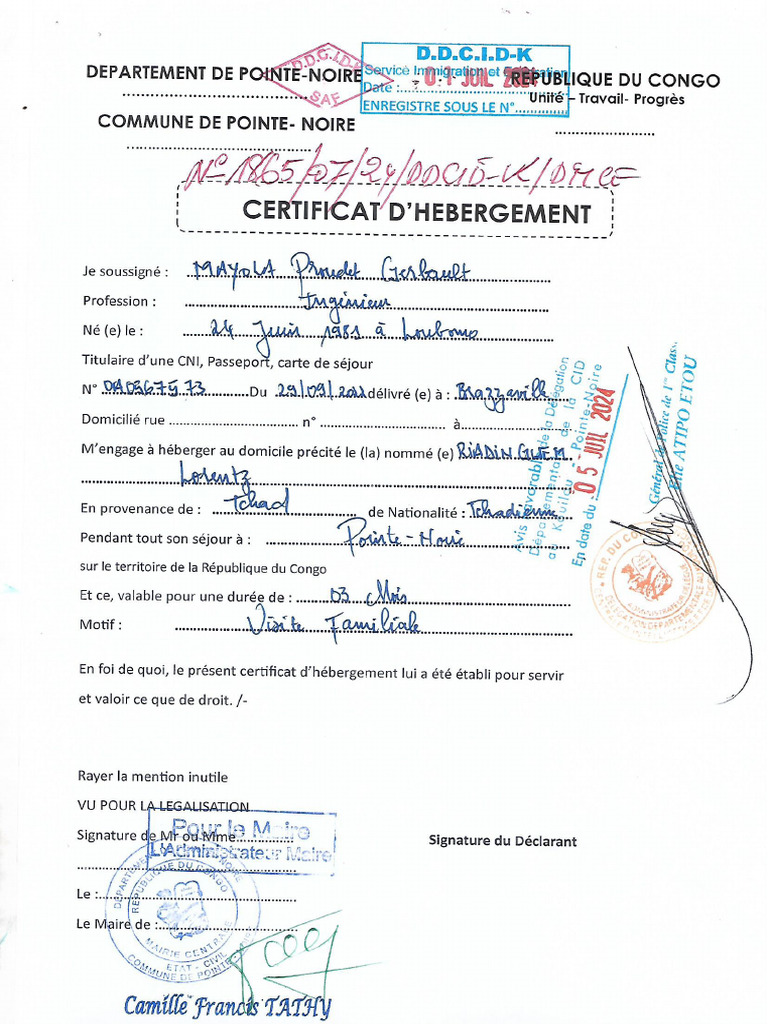 D.D.C.I.D-K
Service Immigration et
Date : 01 JUIL
ENREGISTRE SOUS LE N°
D.D.G.I.D-K
SAF
DEPARTEMENT DE POINTE-NOIRE
REPUBLIQUE DU CONGO
Unité – Travail- Progrès
COMMUNE DE POINTE- NOIRE
N° 1865/07/24/DDCID-K/DMCE
CERTIFICAT D'HEBERGEMENT
Je soussigné : MAYOLA Proudet Gerbault
Profession : Ingénieur
Né (e) le : 24 Juin 1981 à Loubomo
Titulaire d'une CNI, Passeport, carte de séjour
N° 0A0367573 Du 29/09/2022 délivré (e) à : Brazzaville
Domicilié rue n° à
M'engage à héberger au domicile précité le (la) nommé (e) RIADINGUEM
Lorentz
En provenance de : Tchad de Nationalité : Tchadienne
Pendant tout son séjour à : Pointe-Noire
sur le territoire de la République du Congo
Et ce, valable pour une durée de : 03 Mois
Motif : Visite Familiale
Avis favorable de la Délégation
Départementale de la CID
au Kouilou - Pointe-Noire
En date du : 05 JUIL 2024
Général de Police de 1re Classe
Elie ATIPO ETOU
REP. DU CONGO
En foi de quoi, le présent certificat d'hébergement lui a été établi pour servir
et valoir ce que de droit. /-
Rayer la mention inutile
VU POUR LA LEGALISATION
Signature de Mr ou Mme
Signature du Déclarant
Pour le Maire
L'Administrateur Maire
Le :
Le Maire de :
REPUBLIQUE DU CONGO
MAIRIE CENTRALE
ETAT - CIVIL
COMMUNE DE POINTE-
Camille Francis TATHY